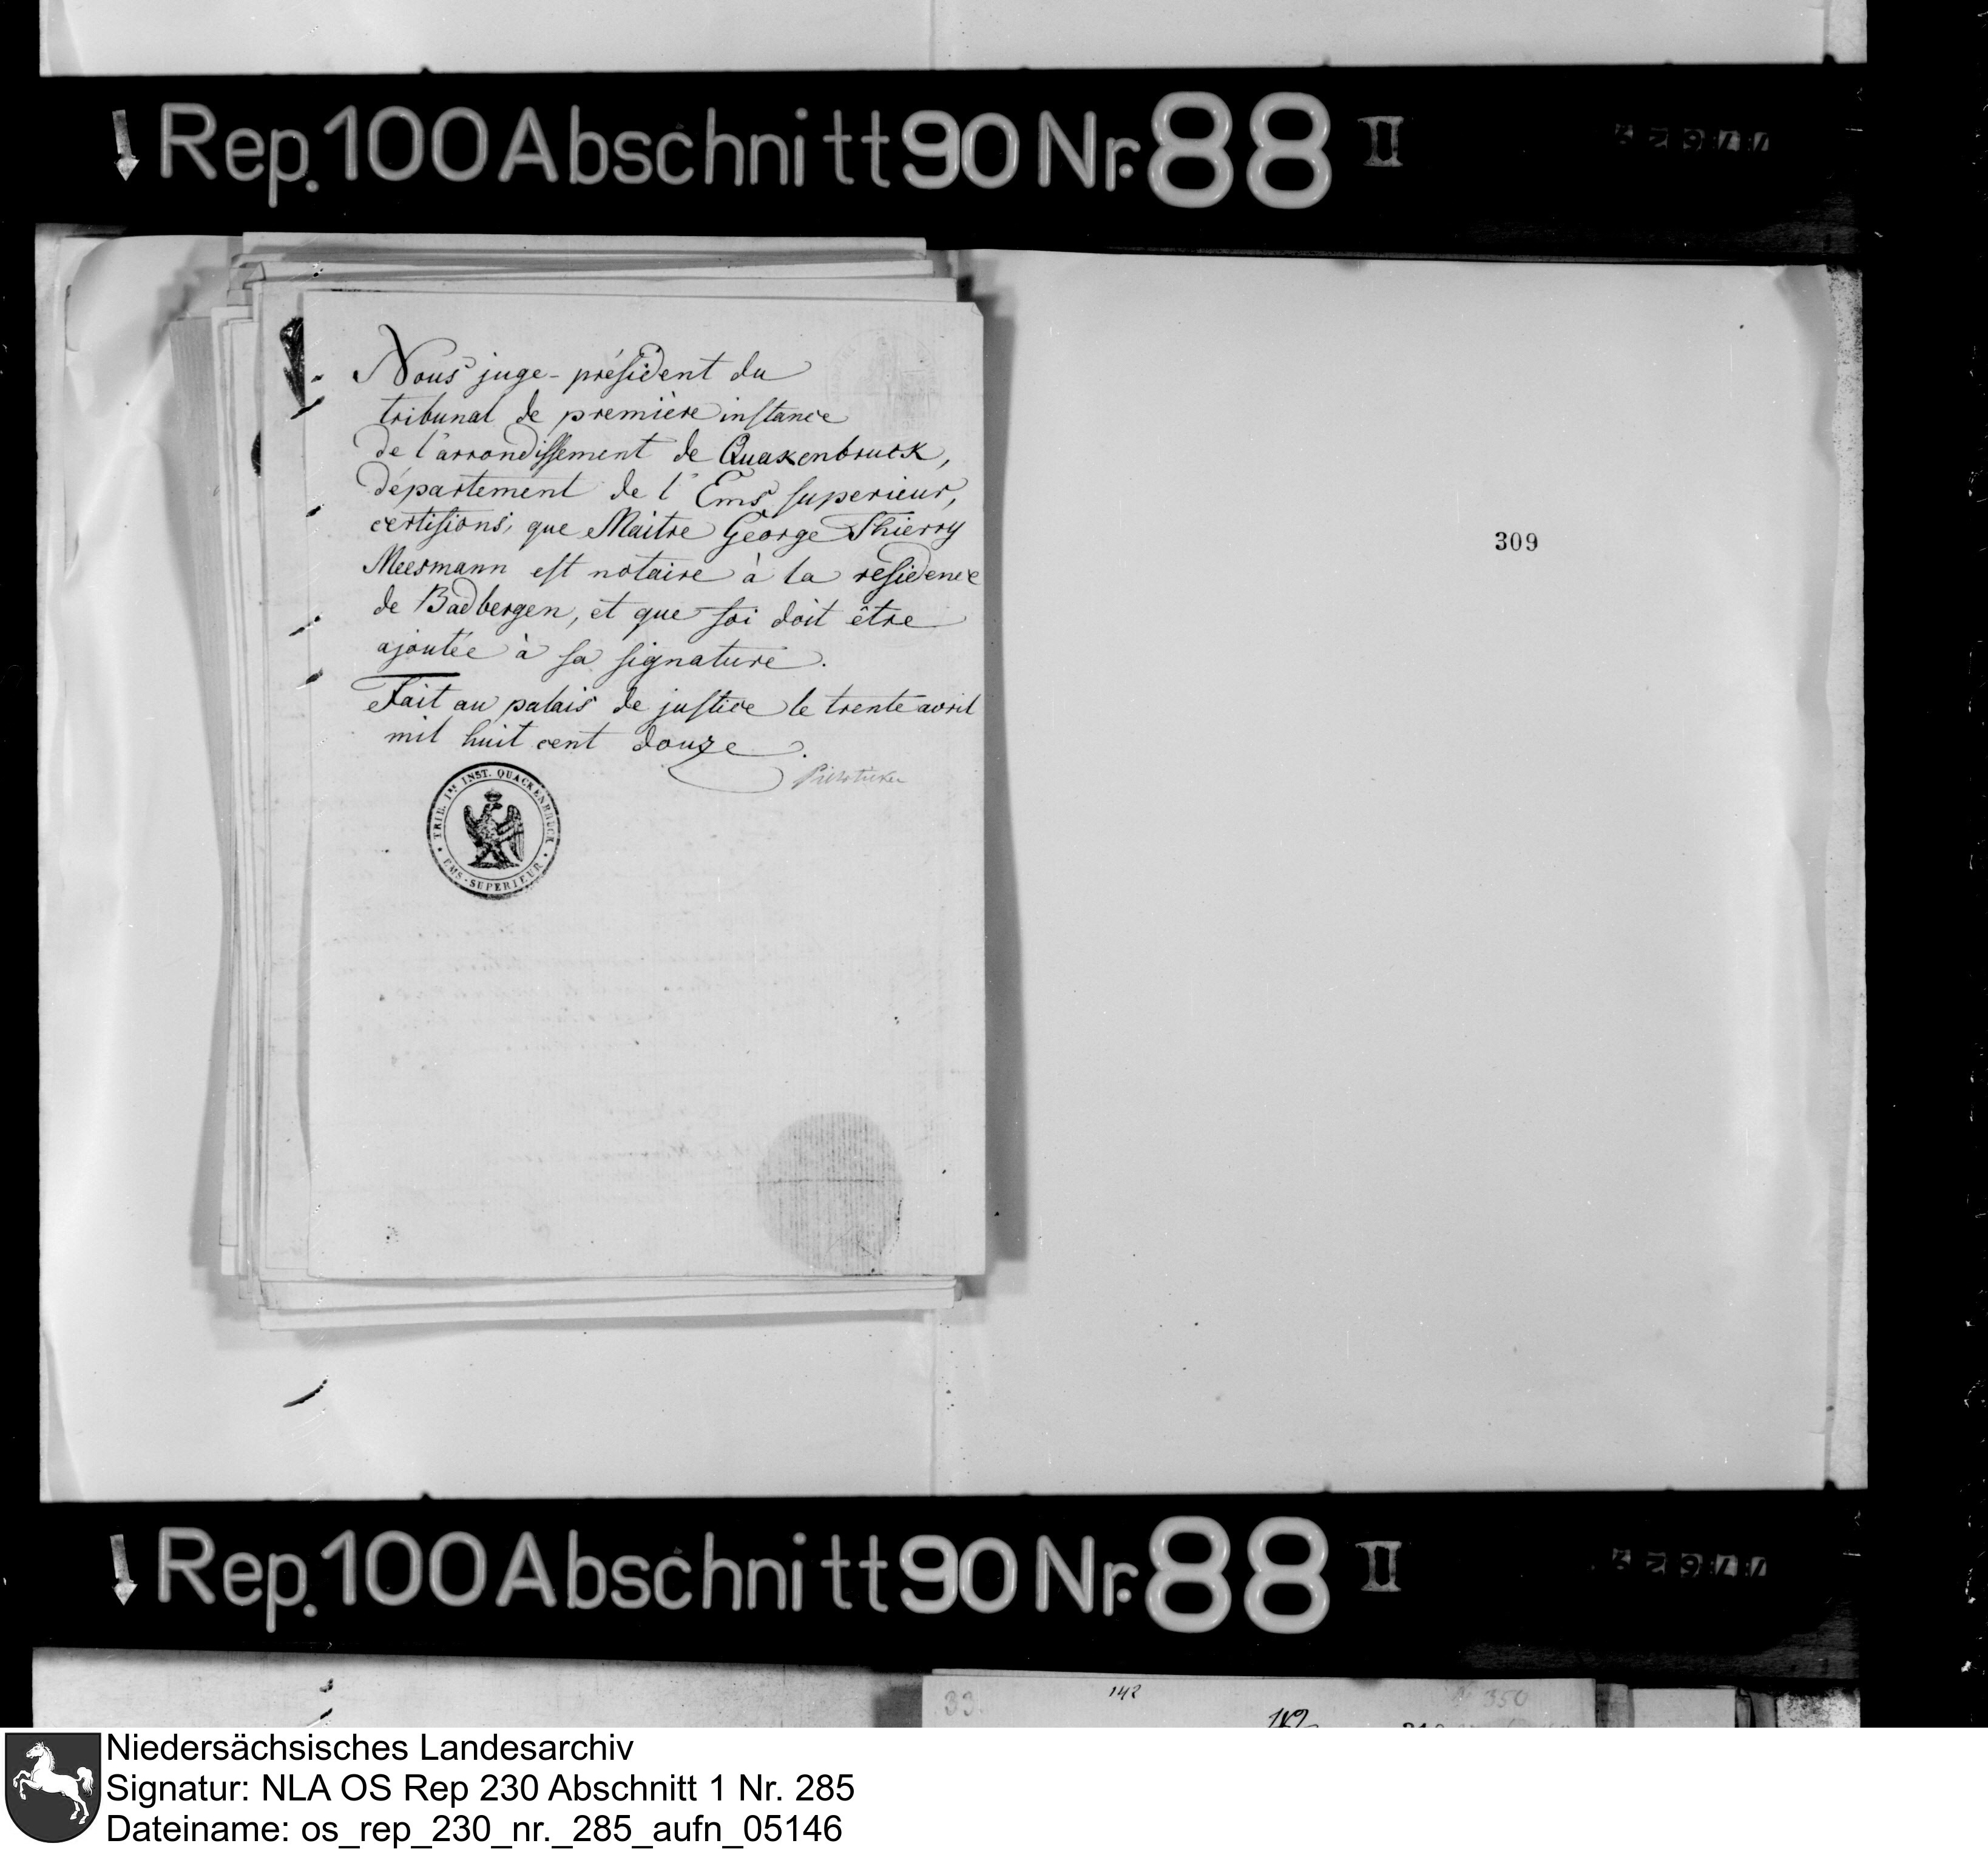 Rep. 100 Abschnitt 90 Nr. 88 II
Nous juge-président du
tribunal de première instance
de l'arrondissement de Quakenbruck,
département de l'Ems superieur,
certifions, que Maitre George Thierry
Meesmann est notaire à la residence
de Badbergen, et que foi doit être
ajoutée à sa signature.
Fait au palais de justice le trente avril
mil huit cent douze.
TRIB. 1re INST. QUACKENBRUCK
EMS-SUPERIEUR
309
Rep. 100 Abschnitt 90 Nr. 88 II
33.
142
350
Niedersächsisches Landesarchiv
Signatur: NLA OS Rep 230 Abschnitt 1 Nr. 285
Dateiname: os_rep_230_nr._285_aufn_05146